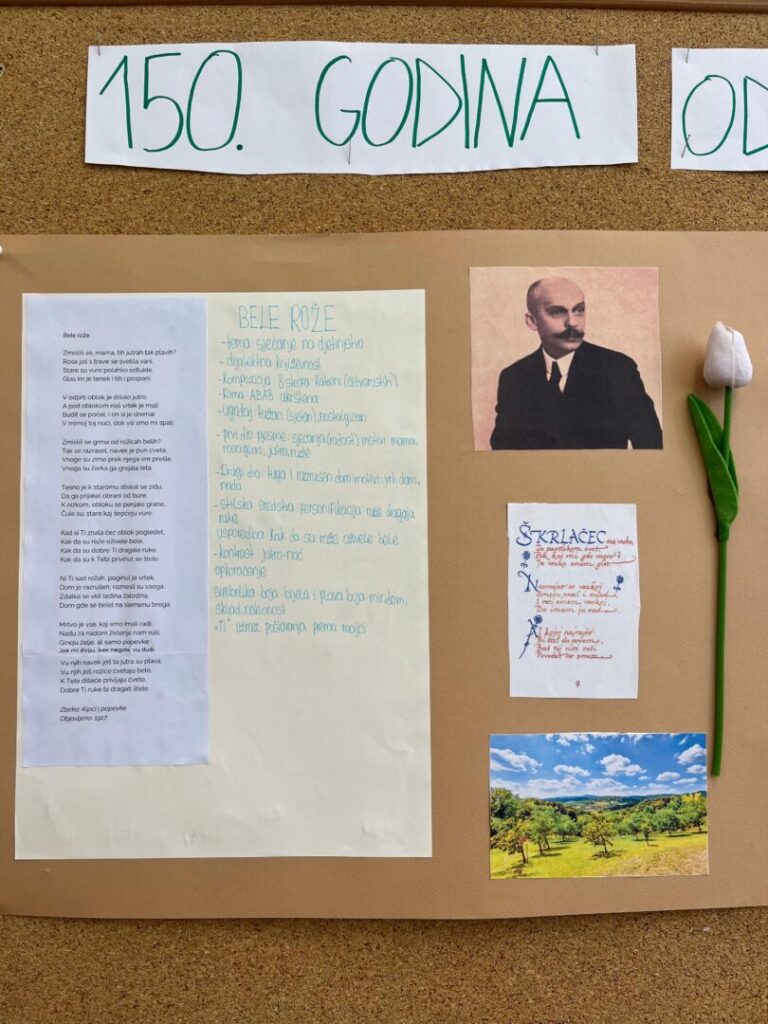 150. GODINA
OD
Bele rože
Zmisliš se, mama, tih jutrah tak plavih?
Rosa još s trave se svetila vani.
Stare su vure polahko odtukle,
Glas im je tenek i tih i pospani.
V odprti oblok je dišalo jutro,
A pod oblokom naš vrtek je mali
Budit se počel, i on si je dremal
V mirnoj toj noći, dok vsi smo mi spali.
Zmisliš se grma od rožicah belih?
Tak se razrasel, navek je pun cveta,
Vnoge su zime prek njega vre prešle,
Vnoga su žarka ga grejala leta.
Tesno je k staromu stiskal se zidu,
Da ga prijatel obrani od bure,
K nizkom, obloku se penjale grane,
Čule su, staro kaj šepćeju vure.
Kad si Ti znala čez oblok pogledet,
Kak da su rože oživele bele,
Kak da su dobre Ti dragale ruke,
Kak da su k Tebi privinut se štele.
Ni Ti sad rožah, poginul je vrtek,
Dom je razrušen, raznesli su vsega,
Zdalka se vidi ledina žalostna,
Dom gde se belel na slemenu brega.
Mrtvo je vse, kaj smo imali radi,
Nadu za nadom živlenje nam ruši,
Ginoju želje, al samo popevke
Još mi živiju, kak negda, vu duši.
Vu njih navek još ta jutra su plava,
Vu njih još rožice cvetaju bele,
K Tebi dišeće privijaju cvete,
Dobre Ti ruke bi dragati štele.
Zbirka: Kipci i popevke
Objavljena: 1917.
BELE ROŽE
-tema: sjećanje na djetinjstvo
-dijalektna književnost
-Kompozicija: 8 strofa katreni (četverostih)
-Rima: ABAB ukrštena
-ugođaj: tužan (sjetan), nostalgičan
-prvi dio pjesme: sjećanja (radost) motivi: mama,
rosa, glas, jutro, ruže
-Drugi dio: tuga i razrušen dom motivi: vrt, dom,
nada
-stilska sredstva: personifikacija: rože dragaju
ruke
usporedba: Kak da su rože oživele bele
-kontrast: jutro-noć
opkoračenje
simbolika boja: bijela i plava boja mir, dom,
sklad, naklonost
-"Ti" izraz poštovanja prema majci
ŠKRLAČEC na vuho,
Za pantlekom cvet:
Pak kaj mi gde more?
Ja vužgal smem svet
Nasmejat se vsakoj
Smem, vesel i mlad,
I reči smem vsakoj,
Da imam ju rad.
Al kojoj najrajši
Bi štel da povem,
Baš toj niti reči
Povedat ne smem.
9